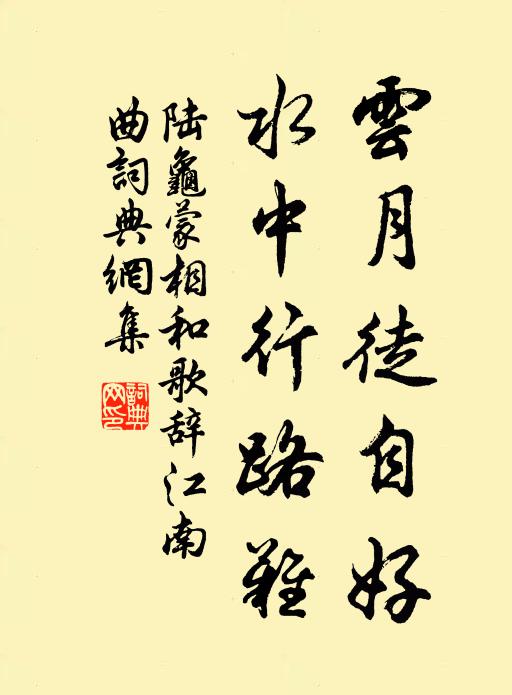 雲月徒自好
水中行路難
陆龜蒙相和歌辞江南
曲詞典網集
詞典
网印